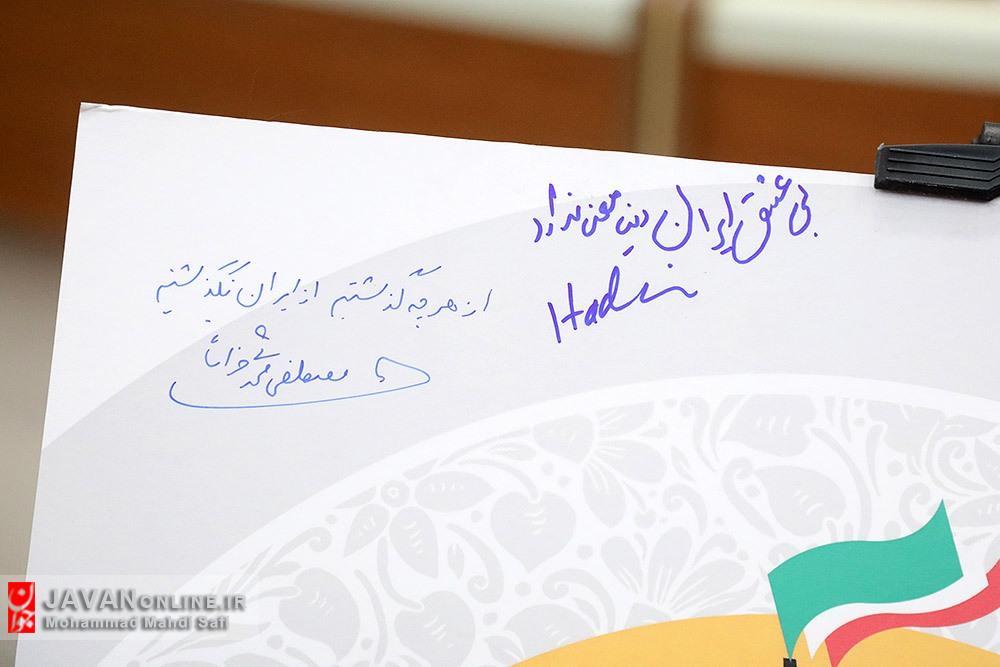 بی عشق ایران دین معنی ندارد
Hadi
از هر چه گذشتیم از ایران نگذشتیم
مصطفی محمدی
JAVANONLINE.IR
Mohammad Mahdi Safi